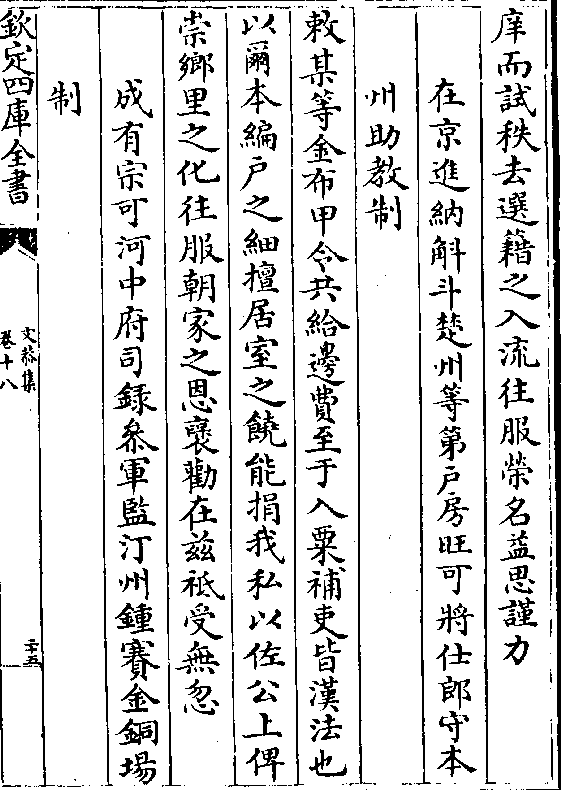 庠而試秩去選籍之入流往服榮名益思謹力
在京進納斛斗楚州等第戸房旺可將仕郎守本
州助教制
敕某等金布甲令共給邊費至于入粟補吏皆漢法也
以爾本編戸之細擅居室之饒能捐我私以佐公上俾
崇鄉里之化往服朝家之恩襃勸在兹祗受無忽
成有宗可河中府司録叅軍監汀州鍾賽金銅場
制
欽定四庫全書
文恭集
卷十八
二十五